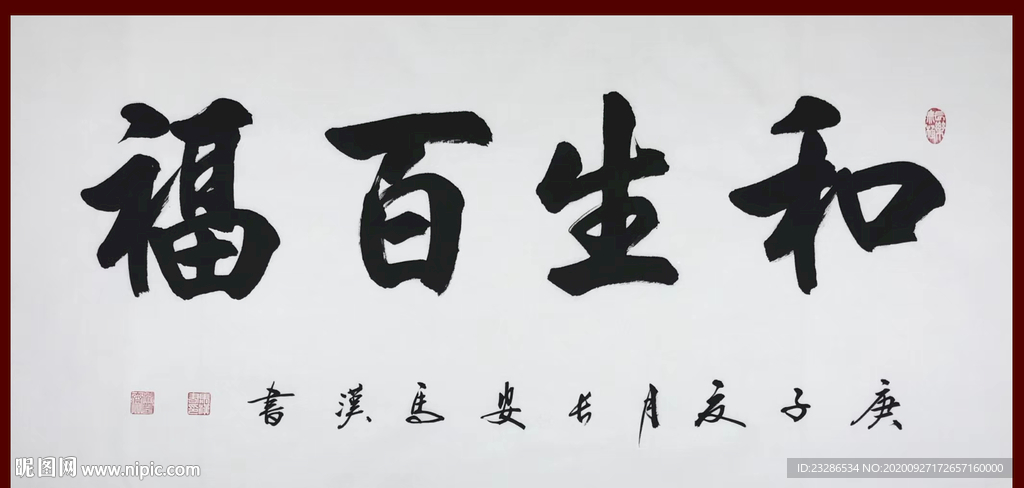 和生百福
庚子夏月长安马汉书
昵图网 www.nipic.com
ID:23286534 NO:20200927172657160000